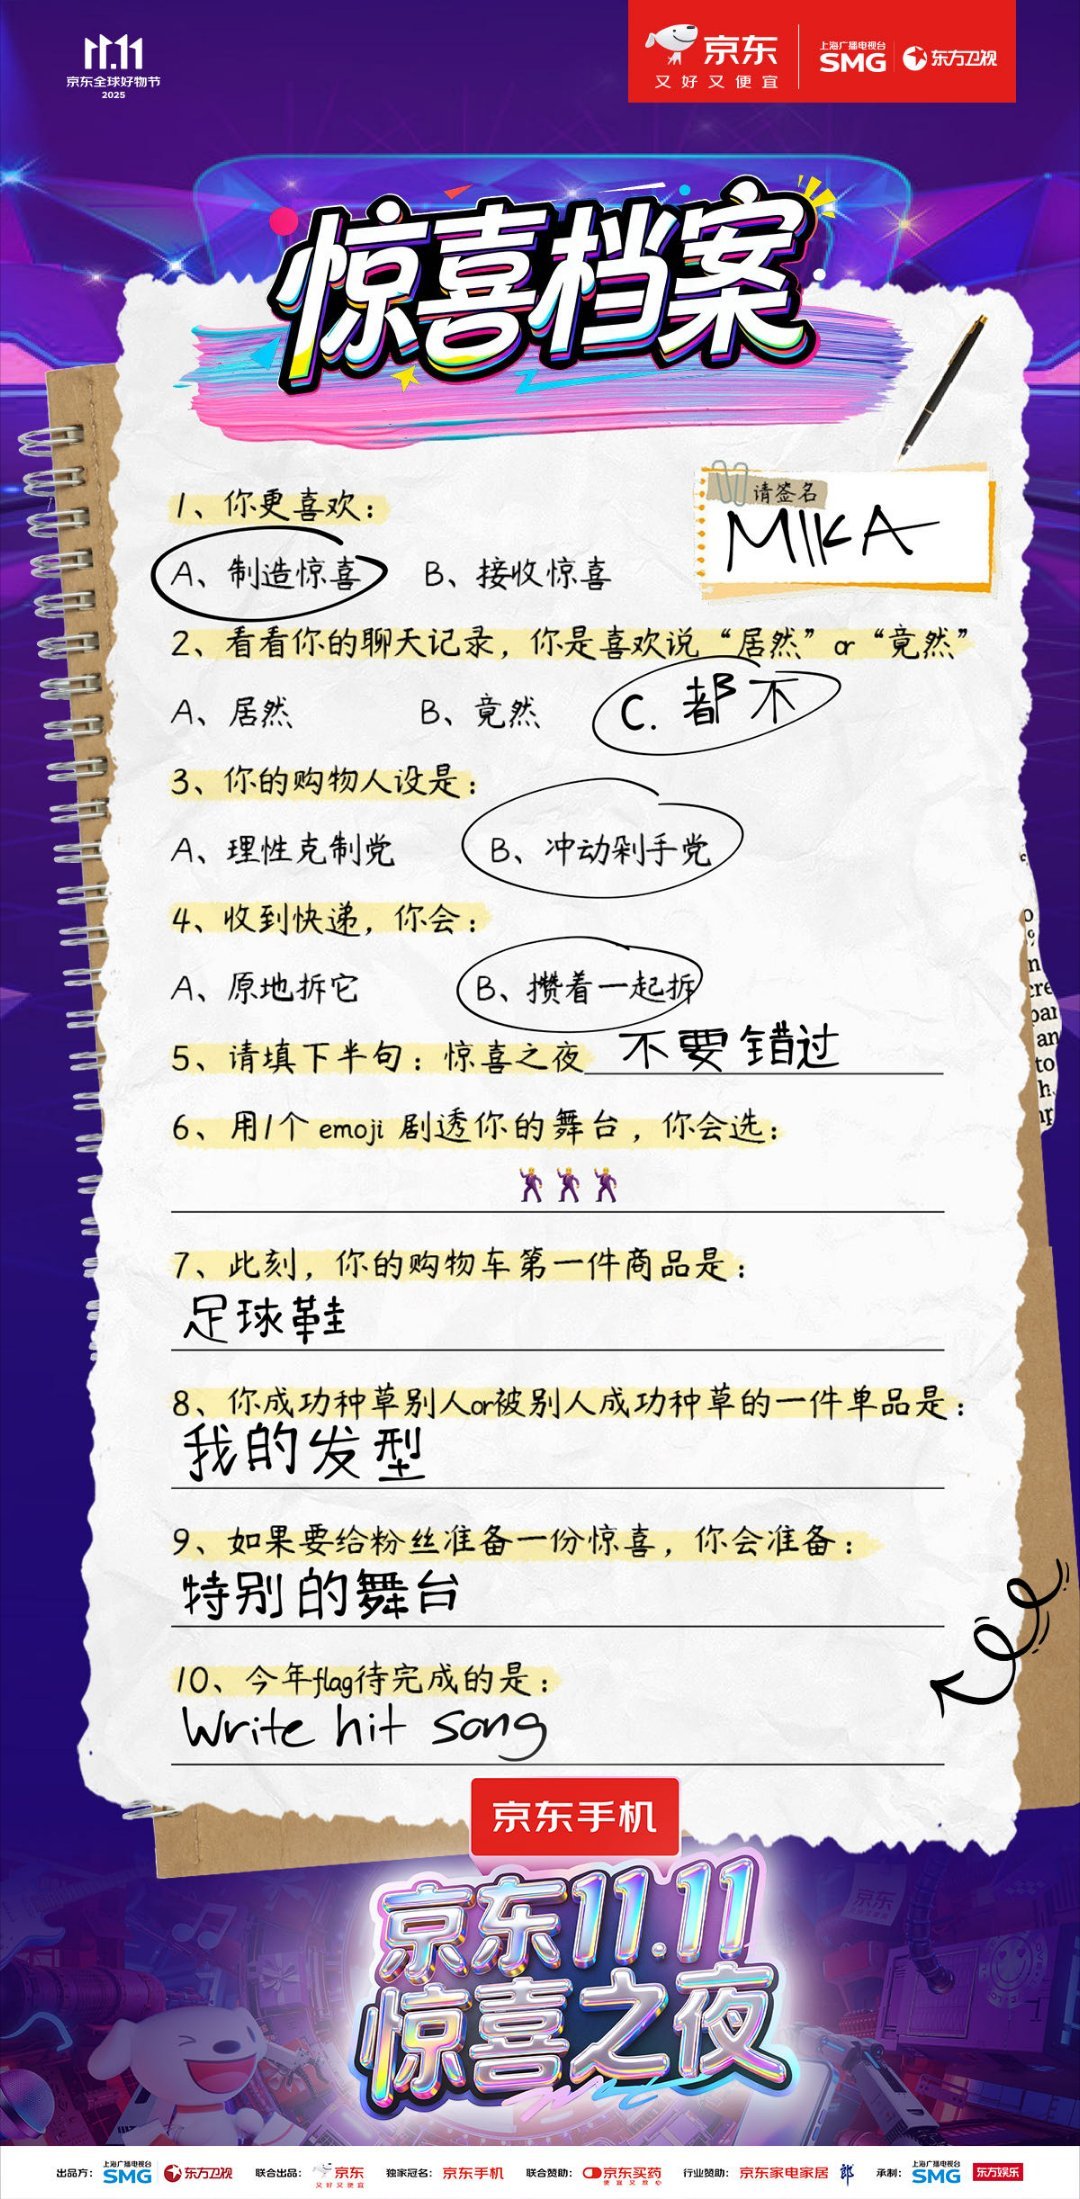 11.11
京东全球好物节
2025
京东
又好又便宜
上海广播电视台
SMG
东方卫视
惊喜档案
请签名
MIKA
1、你更喜欢：
A、制造惊喜 B、接收惊喜
2、看看你的聊天记录，你是喜欢说“居然”or“竟然”
A、居然 B、竟然 C. 都不
3、你的购物人设是：
A、理性克制党 B、冲动剁手党
4、收到快递，你会：
A、原地拆它 B、攒着一起拆
5、请填下半句：惊喜之夜 不要错过
6、用1个emoji 剧透你的舞台，你会选：
🕺🕺🕺
7、此刻，你的购物车第一件商品是：
足球鞋
8、你成功种草别人or被别人成功种草的一件单品是：
我的发型
9、如果要给粉丝准备一份惊喜，你会准备：
特别的舞台
10、今年flag待完成的是：
Write hit song
京东手机
京东11.11
惊喜之夜
出品方： 上海广播电视台 SMG 东方卫视 联合出品： 京东 又好又便宜 独家冠名： 京东手机 联合赞助： 京东买药 便宜又放心 行业赞助： 京东家电家居 郎 承制： 上海广播电视台 SMG 东方娱乐